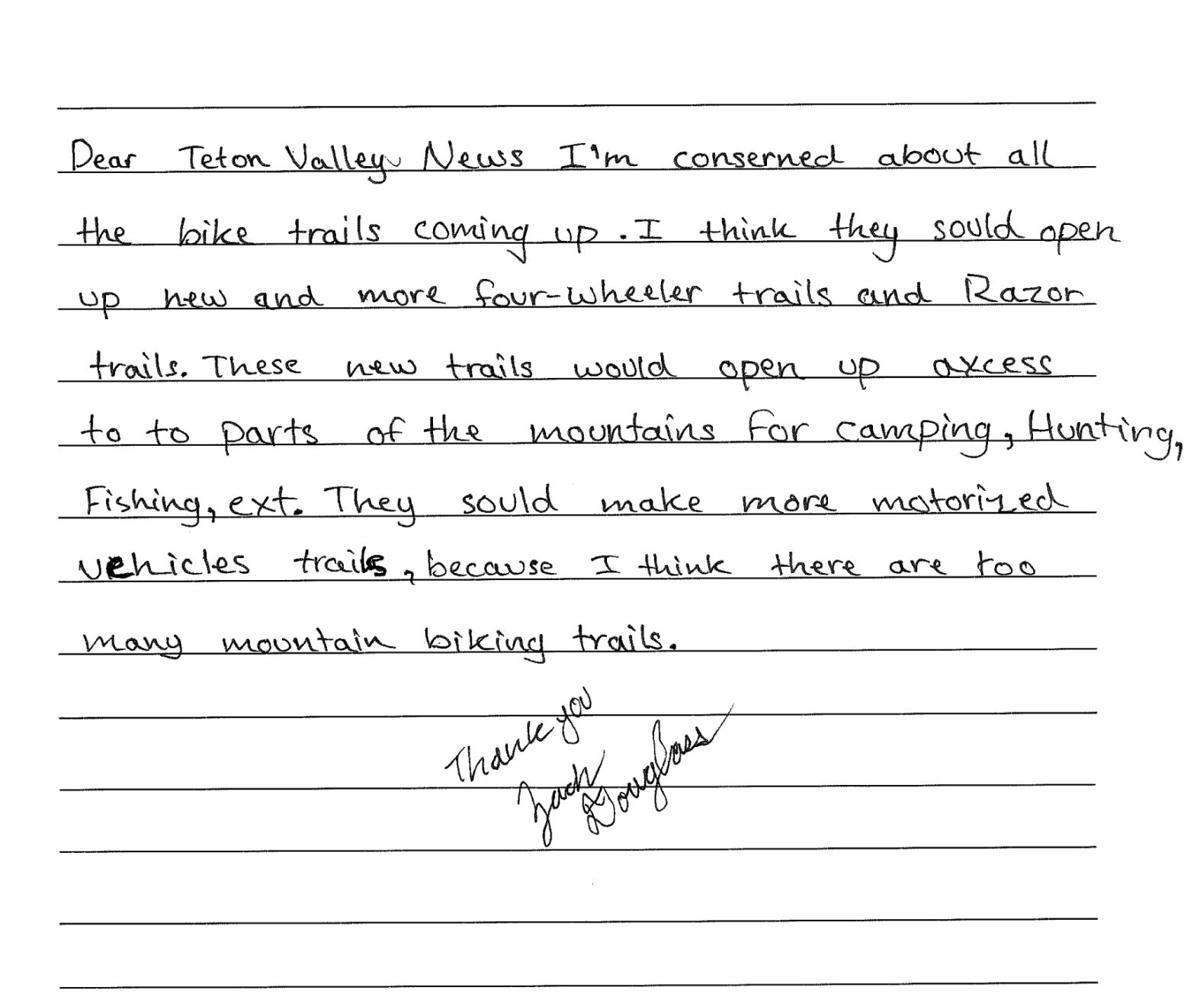 Dear Teton Valley News I'm conserned about all
the bike trails coming up. I think they sould open
up new and more four-wheeler trails and Razor
trails. These new trails would open up axcess
to to parts of the mountains for camping, Hunting,
Fishing, ext. They sould make more motorized
vehicles trails, because I think there are too
many mountain biking trails.
Thank you
Zach Douglass